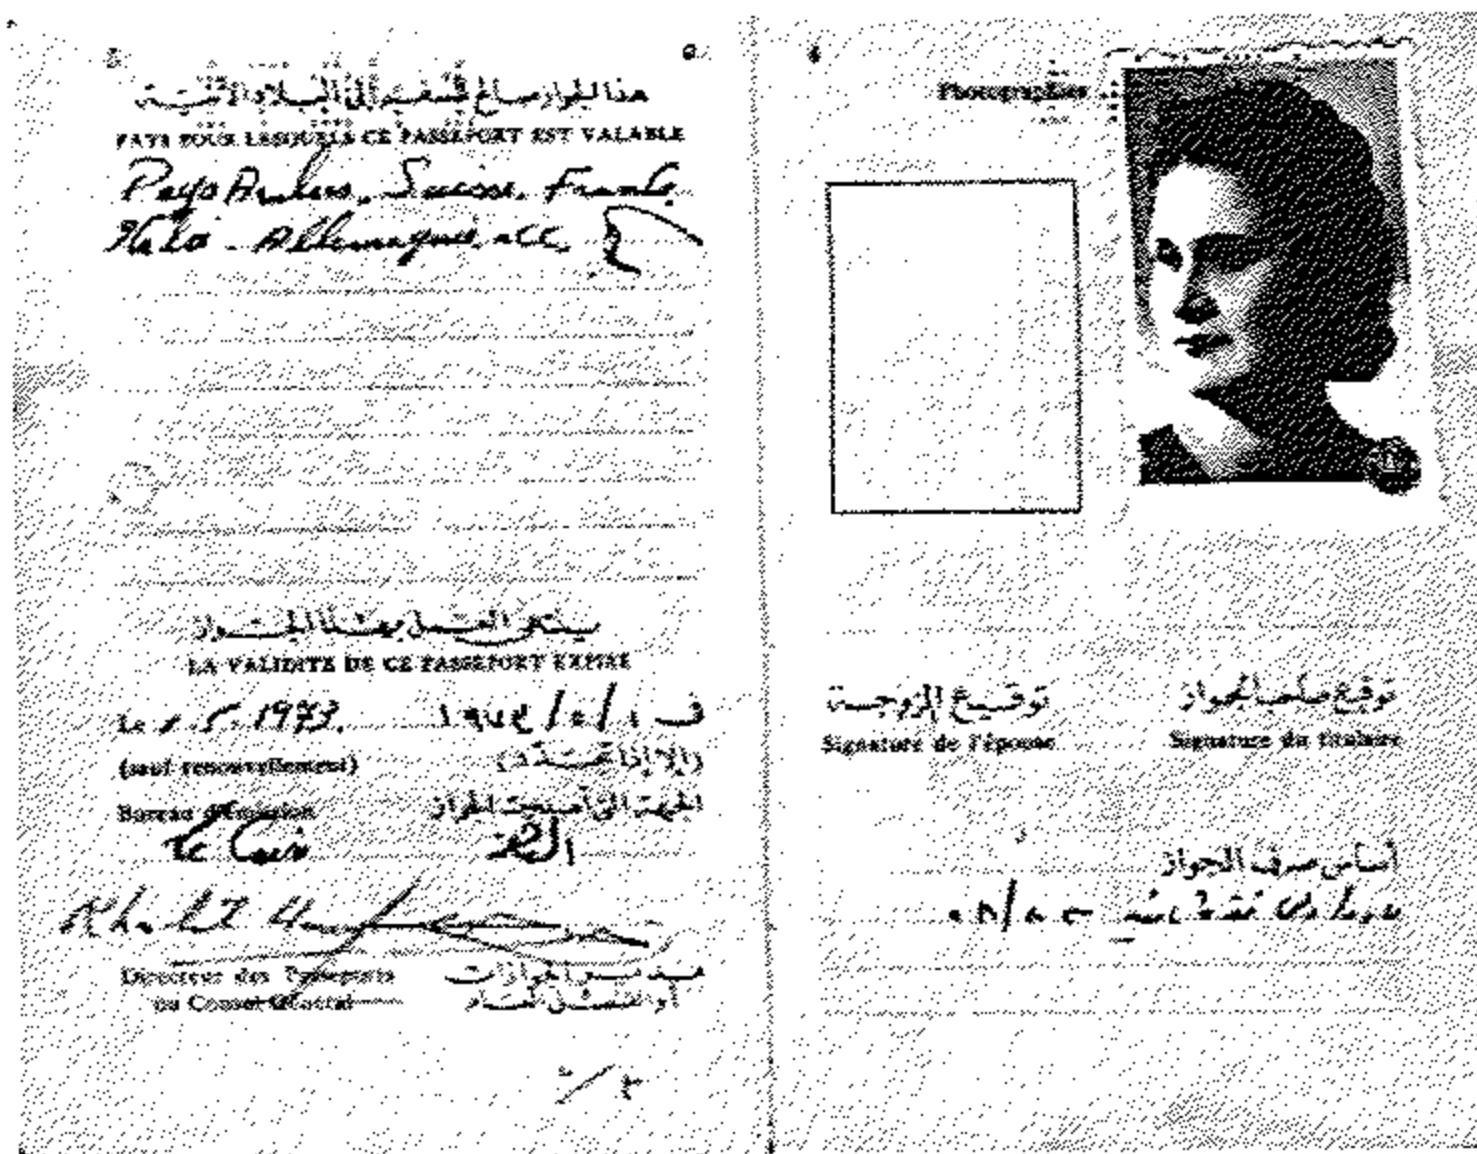 هذا الجواز صالح للسفر إلى البلاد الآتية
PAYS POUR LESQUELS CE PASSEPORT EST VALABLE
Pays Arabes. Suisse. France.
Italie - Allemagne
ينتهى العمل بهذا الجواز
LA VALIDITE DE CE PASSEPORT EXPIRE
Le 1. 5. 1973. فى ١ / ٥ / ١٩٧٣
(sauf renouvellement) (إلا إذا تجدد)
Bureau d'émission الجهة التى أصدرت الجواز
Le Caire القاهرة
Directeur des Passeports مدير الجوازات
ou Consul Général أو القنصل العام
Photographies
توقيع الزوجة توقيع صاحب الجواز
Signature de l'épouse Signature du titulaire
أساس صرف الجواز